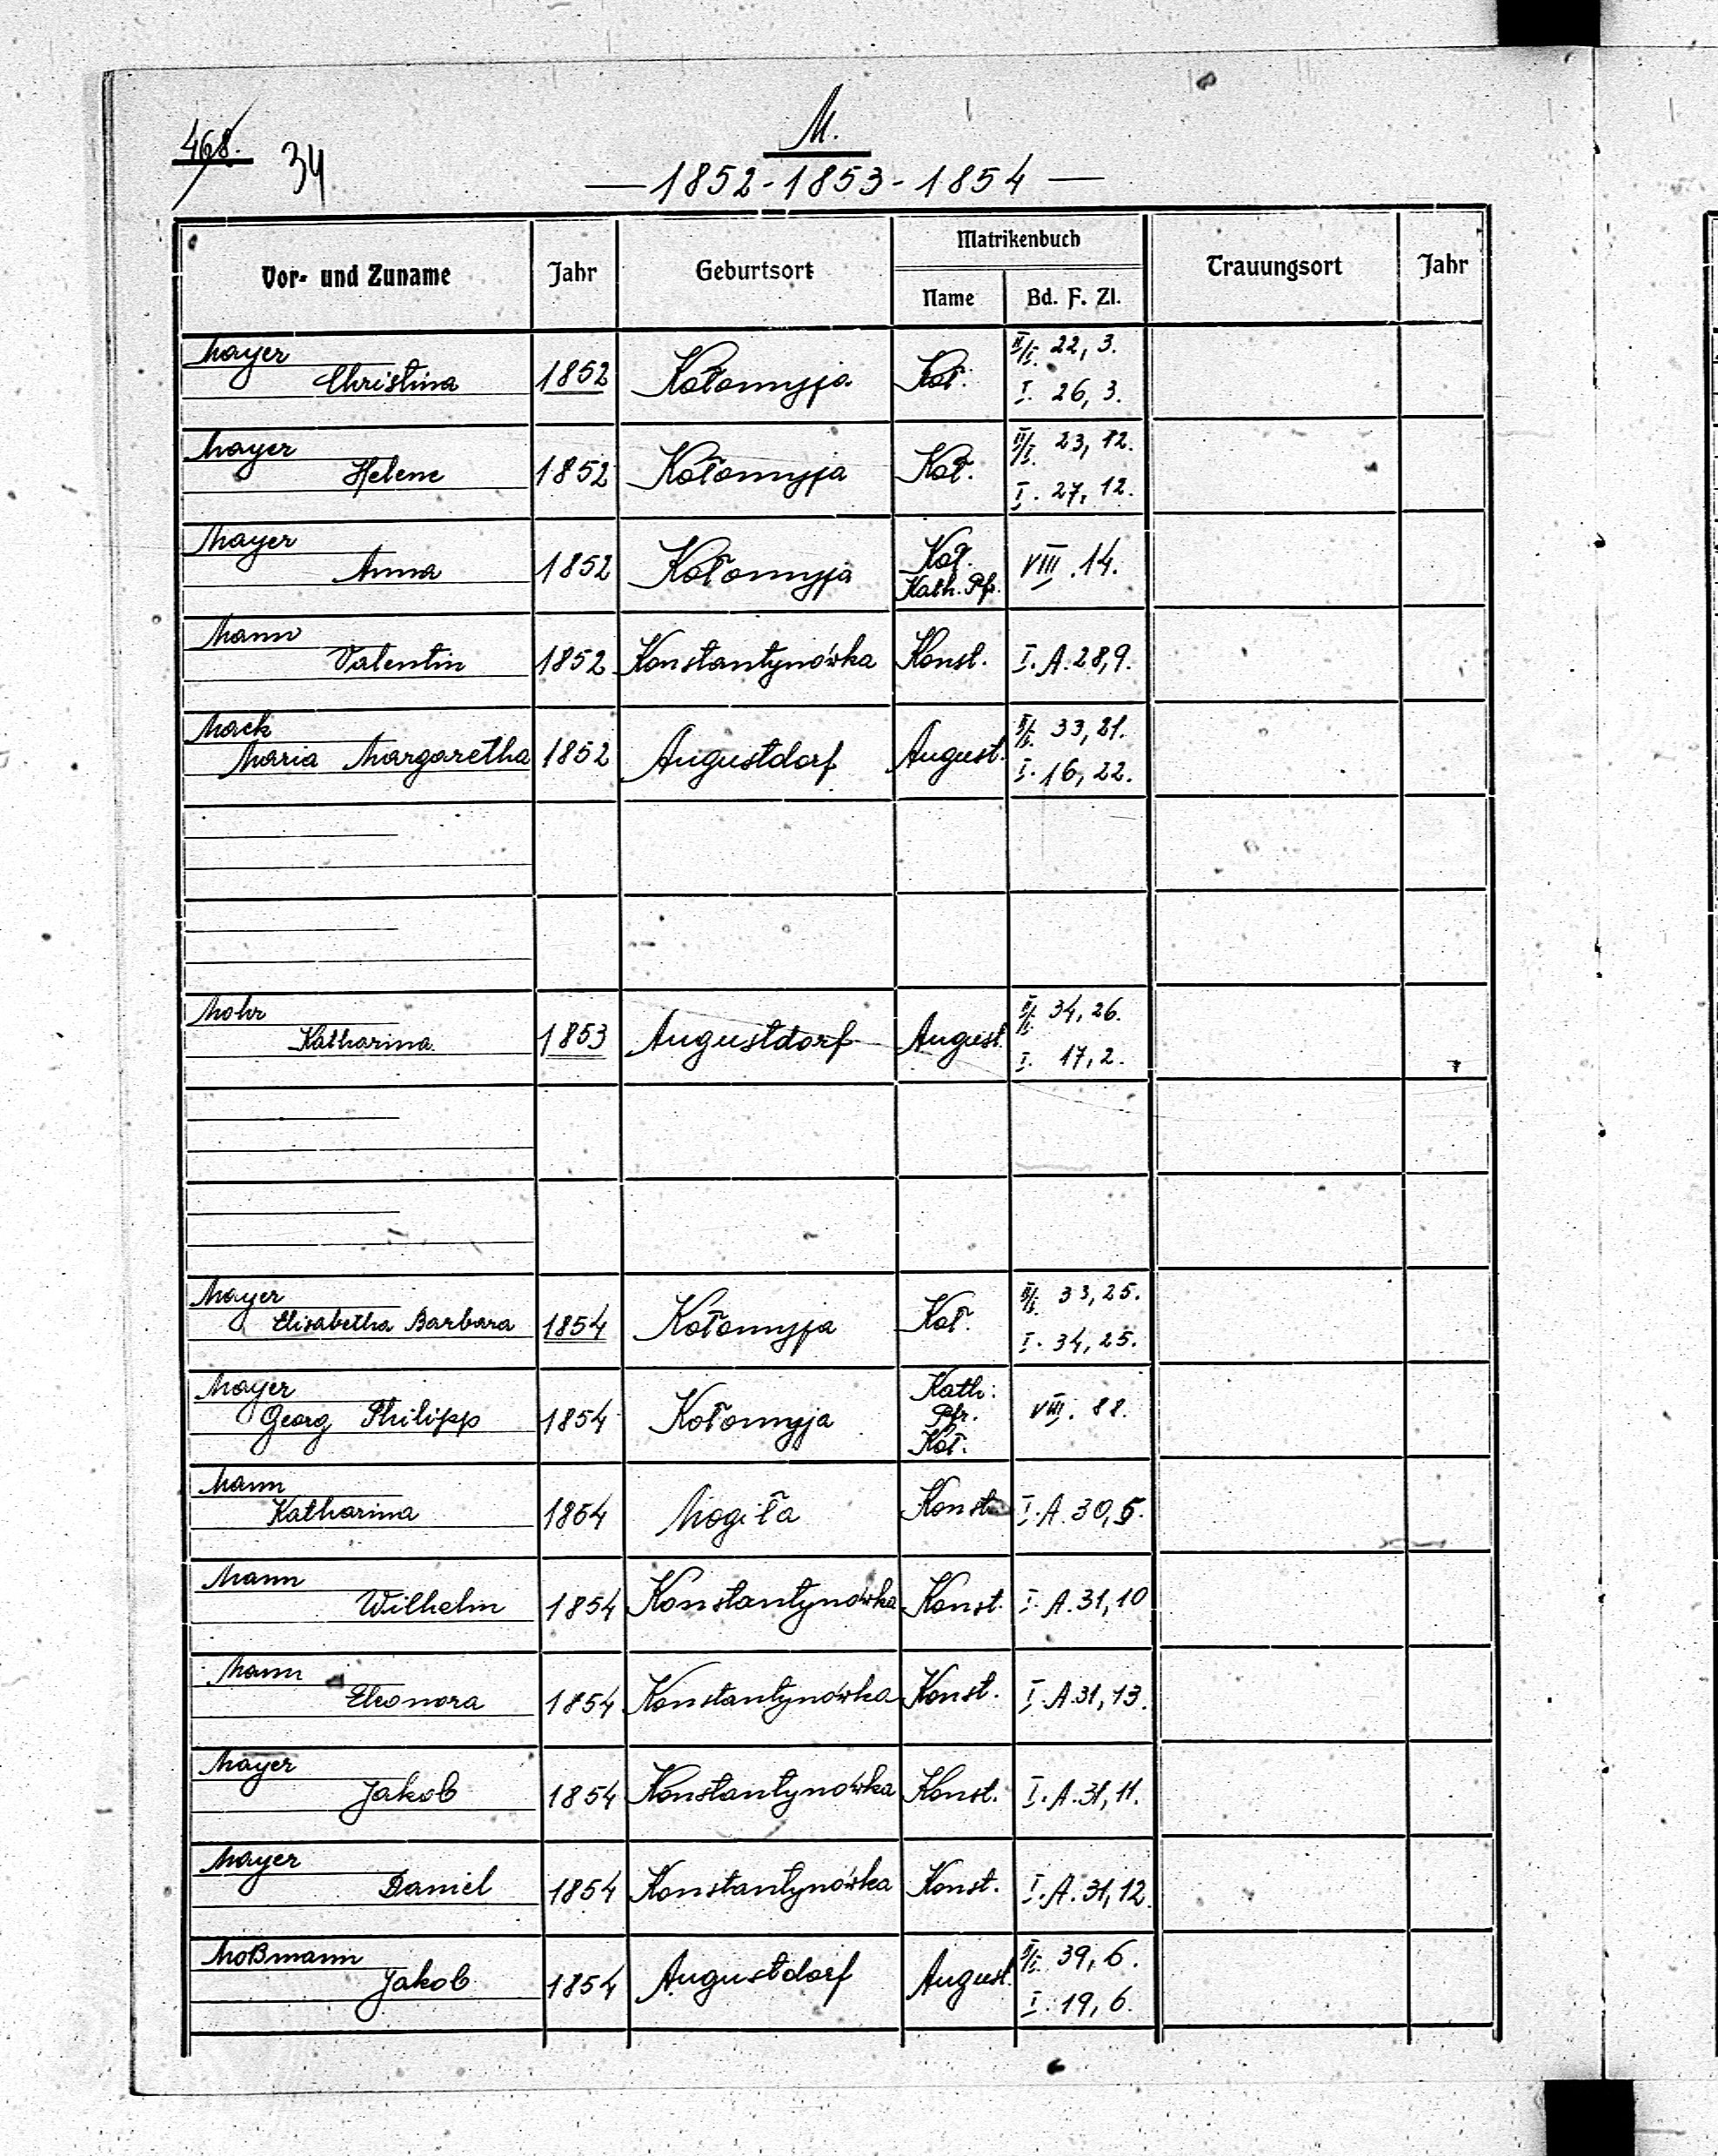 468. 34
M.
— 1852 - 1853 - 1854 —
Vor- und Zuname Jahr Geburtsort Matrikenbuch Trauungsort Jahr
Name Bd. F. Zl.
Mayer
Christina 1852 Kołomyja Koł. II/I. 22, 3.
I. 26, 3.
Mayer
Helene 1852 Kołomyja Koł. II/I. 23, 12.
I. 27, 12.
Mayer
Anna 1852 Kołomyja Koł. Kath. Pf. VIII. 14.
Mann
Valentin 1852 Konstantynówka Konst. I. A. 28, 9.
Mack
Maria Margaretha 1852 Augustdorf August. II/I. 33, 21.
I. 16, 22.
Mohr
Katharina 1853 Augustdorf August. II/I. 34, 26.
I. 17, 2.
Mayer
Elisabetha Barbara 1854 Kołomyja Koł. II/I. 33, 25.
I. 34, 25.
Mayer
Georg Philipp 1854 Kołomyja Kath. Pfr. Koł. VIII. 88.
Mann
Katharina 1854 Mogiła Konst. I. A. 30, 5.
Mann
Wilhelm 1854 Konstantynówka Konst. I. A. 31, 10
Mann
Eleonora 1854 Konstantynówka Konst. I. A. 31, 13.
Mayer
Jakob 1854 Konstantynówka Konst. I. A. 31, 11.
Mayer
Daniel 1854 Konstantynówka Konst. I. A. 31, 12.
Moßmann
Jakob 1854 Augustdorf August. II/I. 39, 6.
I. 19, 6.